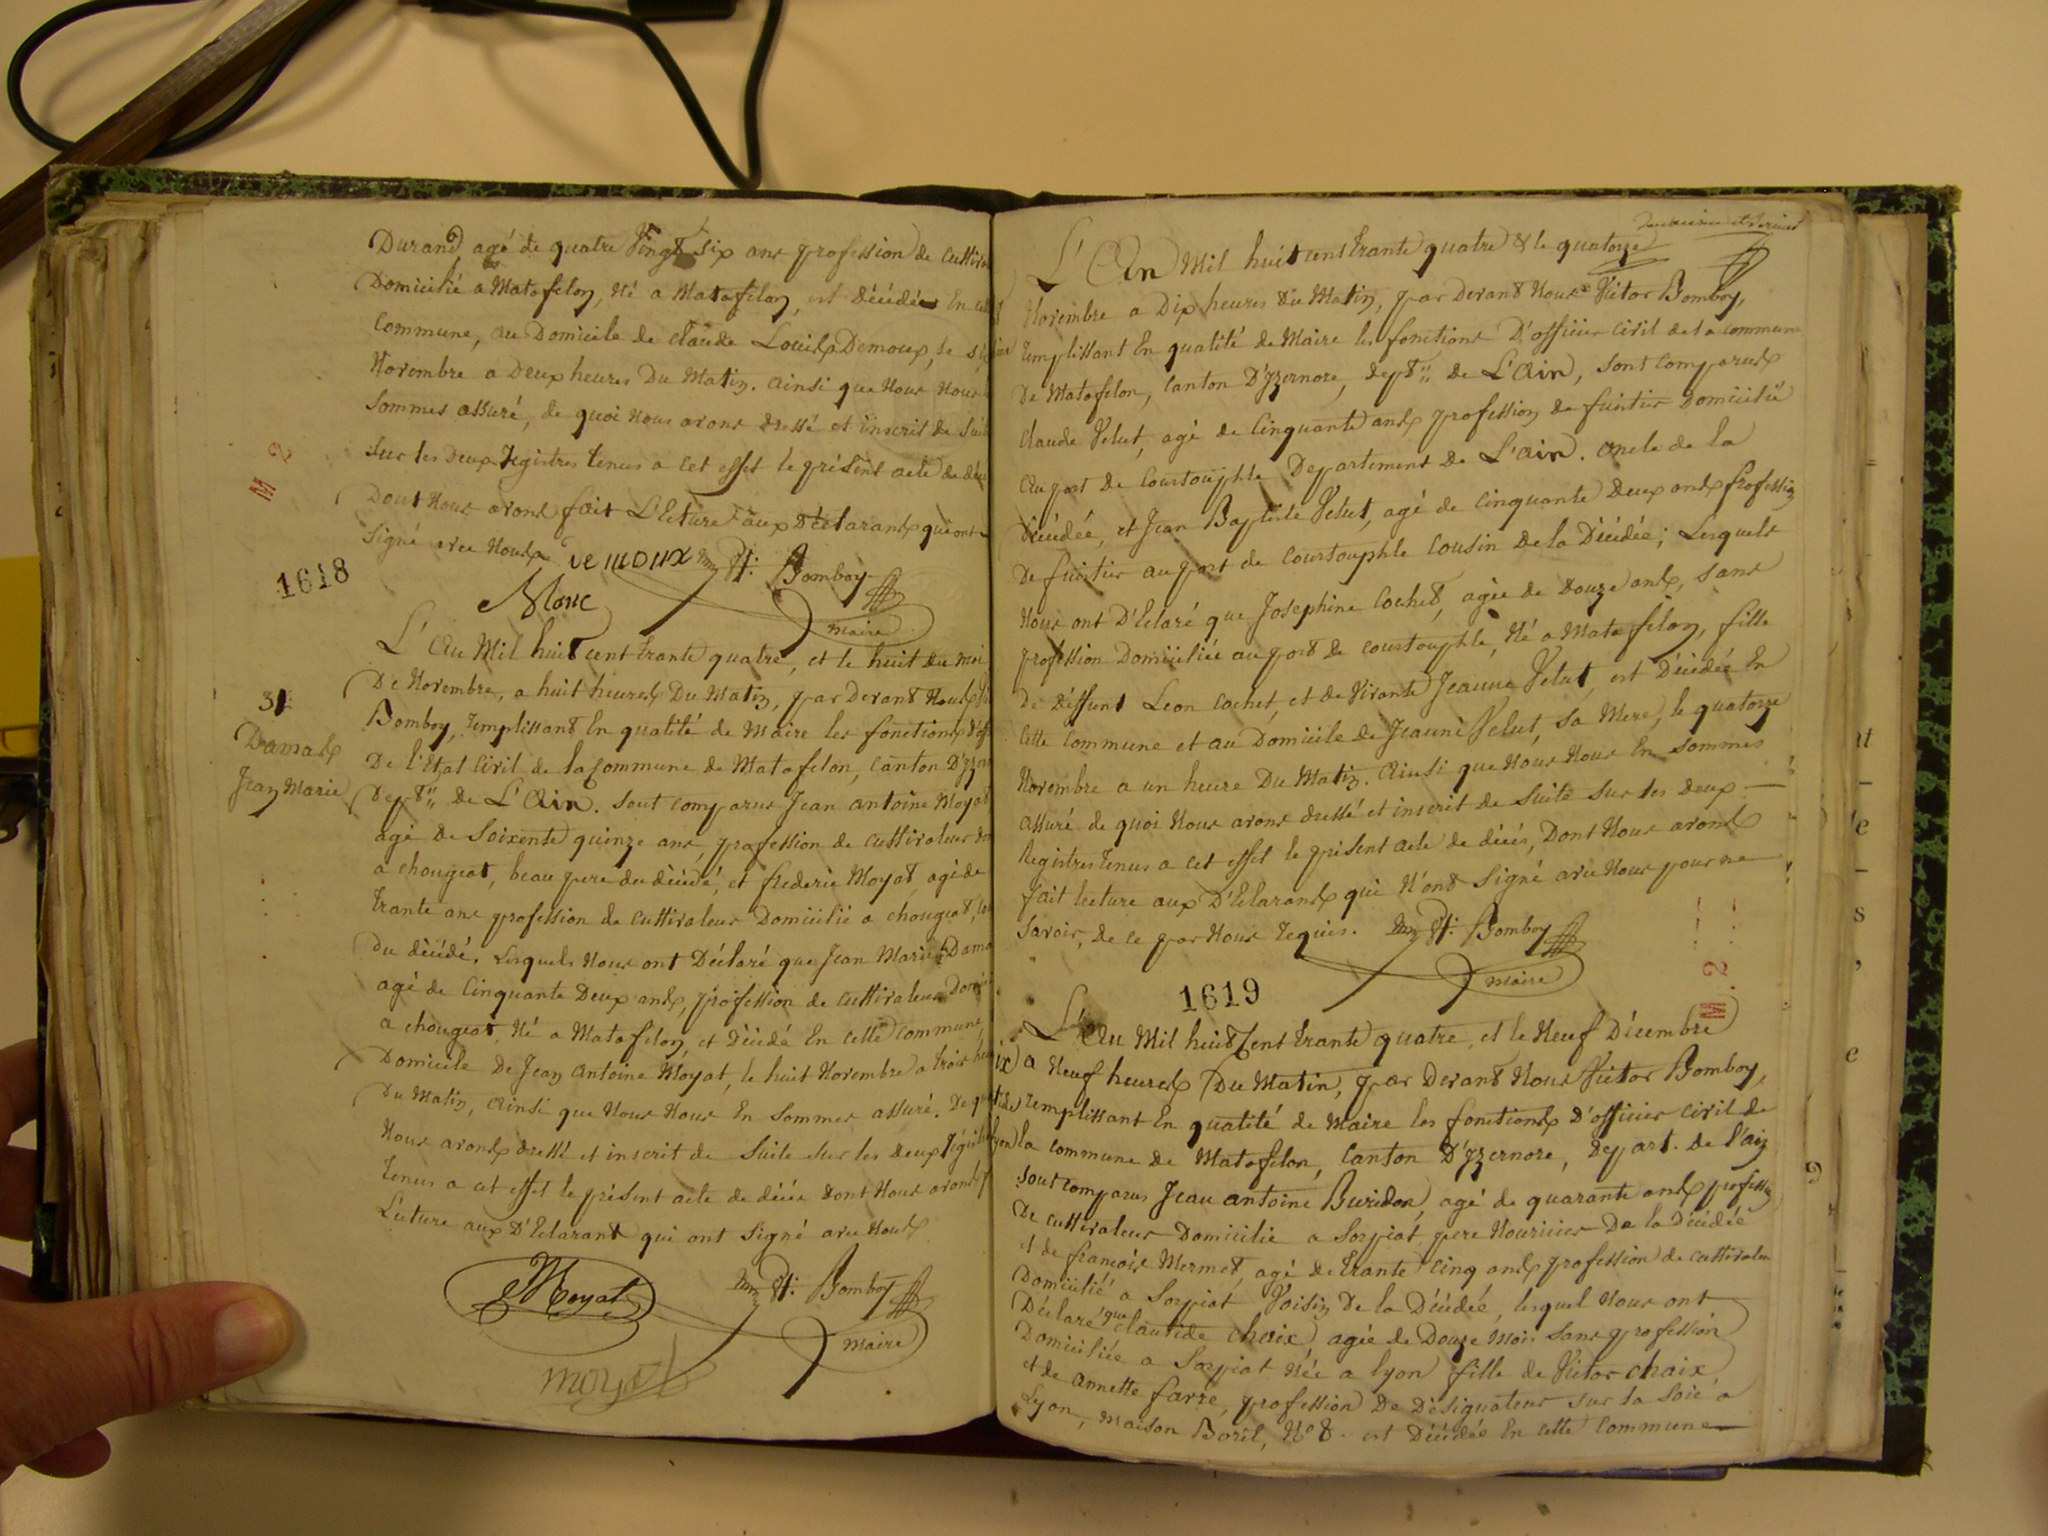 Durand, agé de quatre Vingt Six ans profession de Cultiv
Domicilié a Matafelon, Né a Matafelon, est Décédé En
Commune, au Domicile de claude Louis Demoux, le
Novembre a Deux heures Du Matin. ainsi que Nous Nous
Sommes assuré, de quoi Nous avons dressé et inscrit de Sui
Sur les deux Registres tenus a cet effet le présent acte de déc
Dont Nous avons fait L'Ecture aux déclarans qui ont
Signé avec Nous Demoux Bomboy
Morie
maire
M 2
1618
31
Damas
Jean Marie
L'An Mil huit cent trante quatre, et le huit du moi
De Novembre, a huit heures Du Matin, par Devant Nous
Bomboy, remplissant En qualité de Maire les fonctions d'off
De l'Etat Civil de la Commune de Matafelon, Canton D'yzer
Dept de L'Ain. Sont comparus Jean antoine Moyat
agé de Soixente quinze ans, profession de cultivateur
a chougeat, beau pere du décédé, et frederic Moyat, agé de
trante ans profession de cultivateur Domicilié a chougeat,
Du décédé, Lesquels Nous ont Déclaré que Jean Marie Dama
agé de Cinquante Deux ans, profession de cultivateur Domi
a chougeat, Né a Matafelon, et Décédé En cette Commune,
Domicile De Jean Antoine Moyat, le huit Novembre a trois heu
Du Matin, Ainsi que Nous Nous En Sommes assuré. De quoi
Nous avons dressé et inscrit de Suite Sur les deux
tenus a cet effet le présent acte de décès dont Nous avons f
L'ecture aux D'Eclarant qui ont Signé avec Nous
Moyat Bomboy
maire
moyat
deuxieme et dernier
L'An Mil huit cent trante quatre & le quatorze
Novembre a Dix heures du Matin, par Devant Nous Victor Bomboy,
remplissant En qualité de Maire les fonctions D'officier Civil de la commune
De Matafelon, Canton D'yzernore, dept de L'Ain, sont comparus
Claude Velut, agé de Cinquante ans profession de fuitier Domicilié
au port de Courtouphle Departement de L'Ain. oncle de la
Décédée, et Jean Baptiste Velut, agé de cinquante Deux ans profession
De fuitier au port de Courtouphle Cousin de la Décédée; Lesquels
Nous ont D'Eclaré que Josephine Cochet, agée de Douze ans, sans
profession Domiciliée au port de courtouphle, Né a Matafelon, fille
De Deffunt Leon Cochet, et de Vivante Jeanne Velut, est Décédée En
Cette Commune et au Domicile de Jeanne Velut, Sa Mere, le quatorze
Novembre a un heure Du Matin. Ainsi que Nous Nous En Sommes
assuré de quoi Nous avons dressé et inscrit de Suite Sur les deux
Registres tenus a cet effet le présent acte de décès, Dont Nous avons
fait lecture aux D'Eclarans qui N'ont Signé avec Nous pour ne
Savoir, de ce par Nous requis. Bomboy
maire
1619
M 2
L'An Mil huit Cent trante quatre, et le Neuf Décembre
a Neuf heures Du Matin, par Devant Nous Victor Bomboy,
remplissant En qualité de Maire les fonctions D'officier Civil de
la Commune de Matafelon, Canton D'yzernore, Depart. de l'ain
Sont comparus Jean antoine Buridon, agé de quarante ans profession
De cultivateur Domicilié a Sorpiat pere Nouricier De la Décédée
et de francois Mermet, agé de trante Cinq ans profession de cultivateur
Domicilié a Sorpiat Voisin De la Décédée, lesquel Nous ont
Déclaré que Claudide Chaix agée de Douze Mois Sans profession
Domiciliée a Sorpiat Née a lyon fille de Victor Chaix
et de annette farre, profession De Designateur Sur la Soie a
Lyon, Maison Boril, N° 8. est Décédée En cette Commune